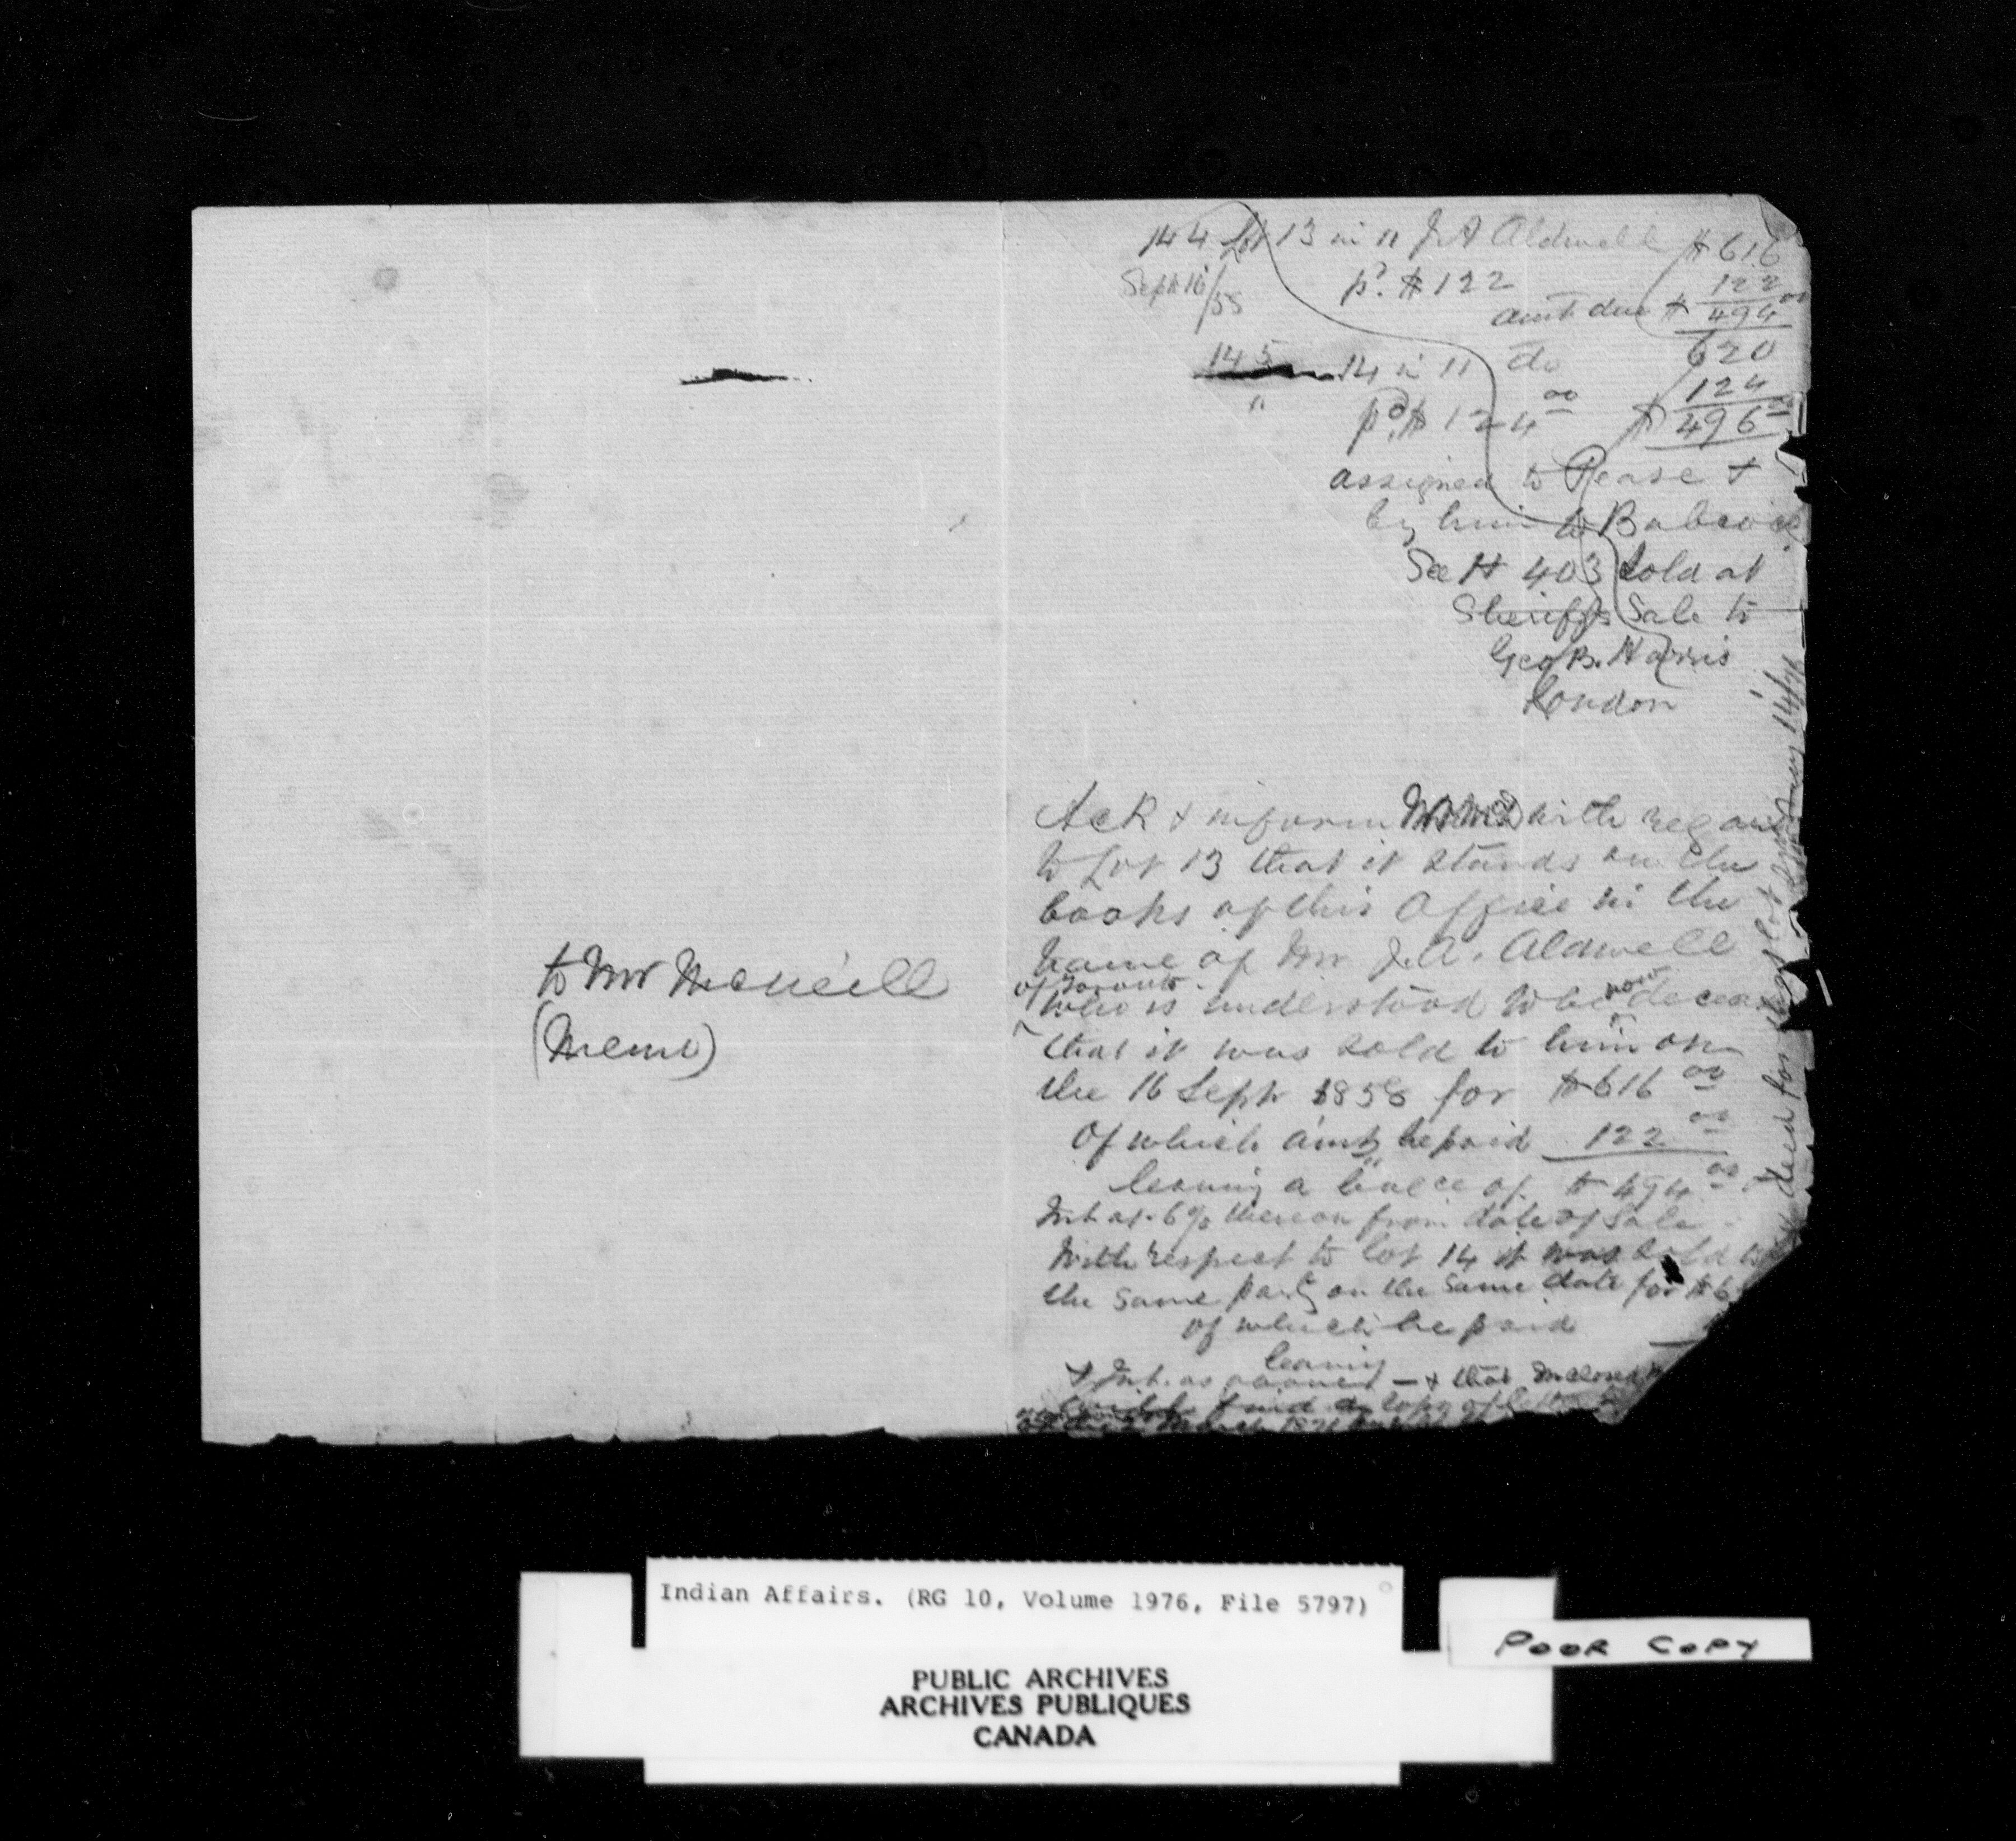 144 Lot 13 in 11 J. A Aldwell $616
Sept 16/58 pd. $122 122
amt due $ 494 00
145 14 in 11 do 620
" pd. $ 124 00 124
$ 496 00
assigned to Pease +
by him to Babcock
See H 403 Sold at
Sheriffs Sale to
Geo B. Harris
London
to Mr McNeill
(Memo)
Ack & inform with regard
to Lot 13 that it stands on the
books of this Office in the
name of Mr J. A. Aldwell
of Toronto
who is understood to be now
that it was sold to him on
the 16 Sept 1858 for $616 00
Of which amt he paid 122 00
leaving a balce of $ 494 00 +
Int at 6% thereon from date of Sale
With respect to lot 14 it was sold to
the same party on the same date for $6
of which he paid
leaving
& Int. as — & that
deed for lot 14/76
Indian Affairs. (RG 10, Volume 1976, File 5797)
PUBLIC ARCHIVES
ARCHIVES PUBLIQUES
CANADA
POOR COPY